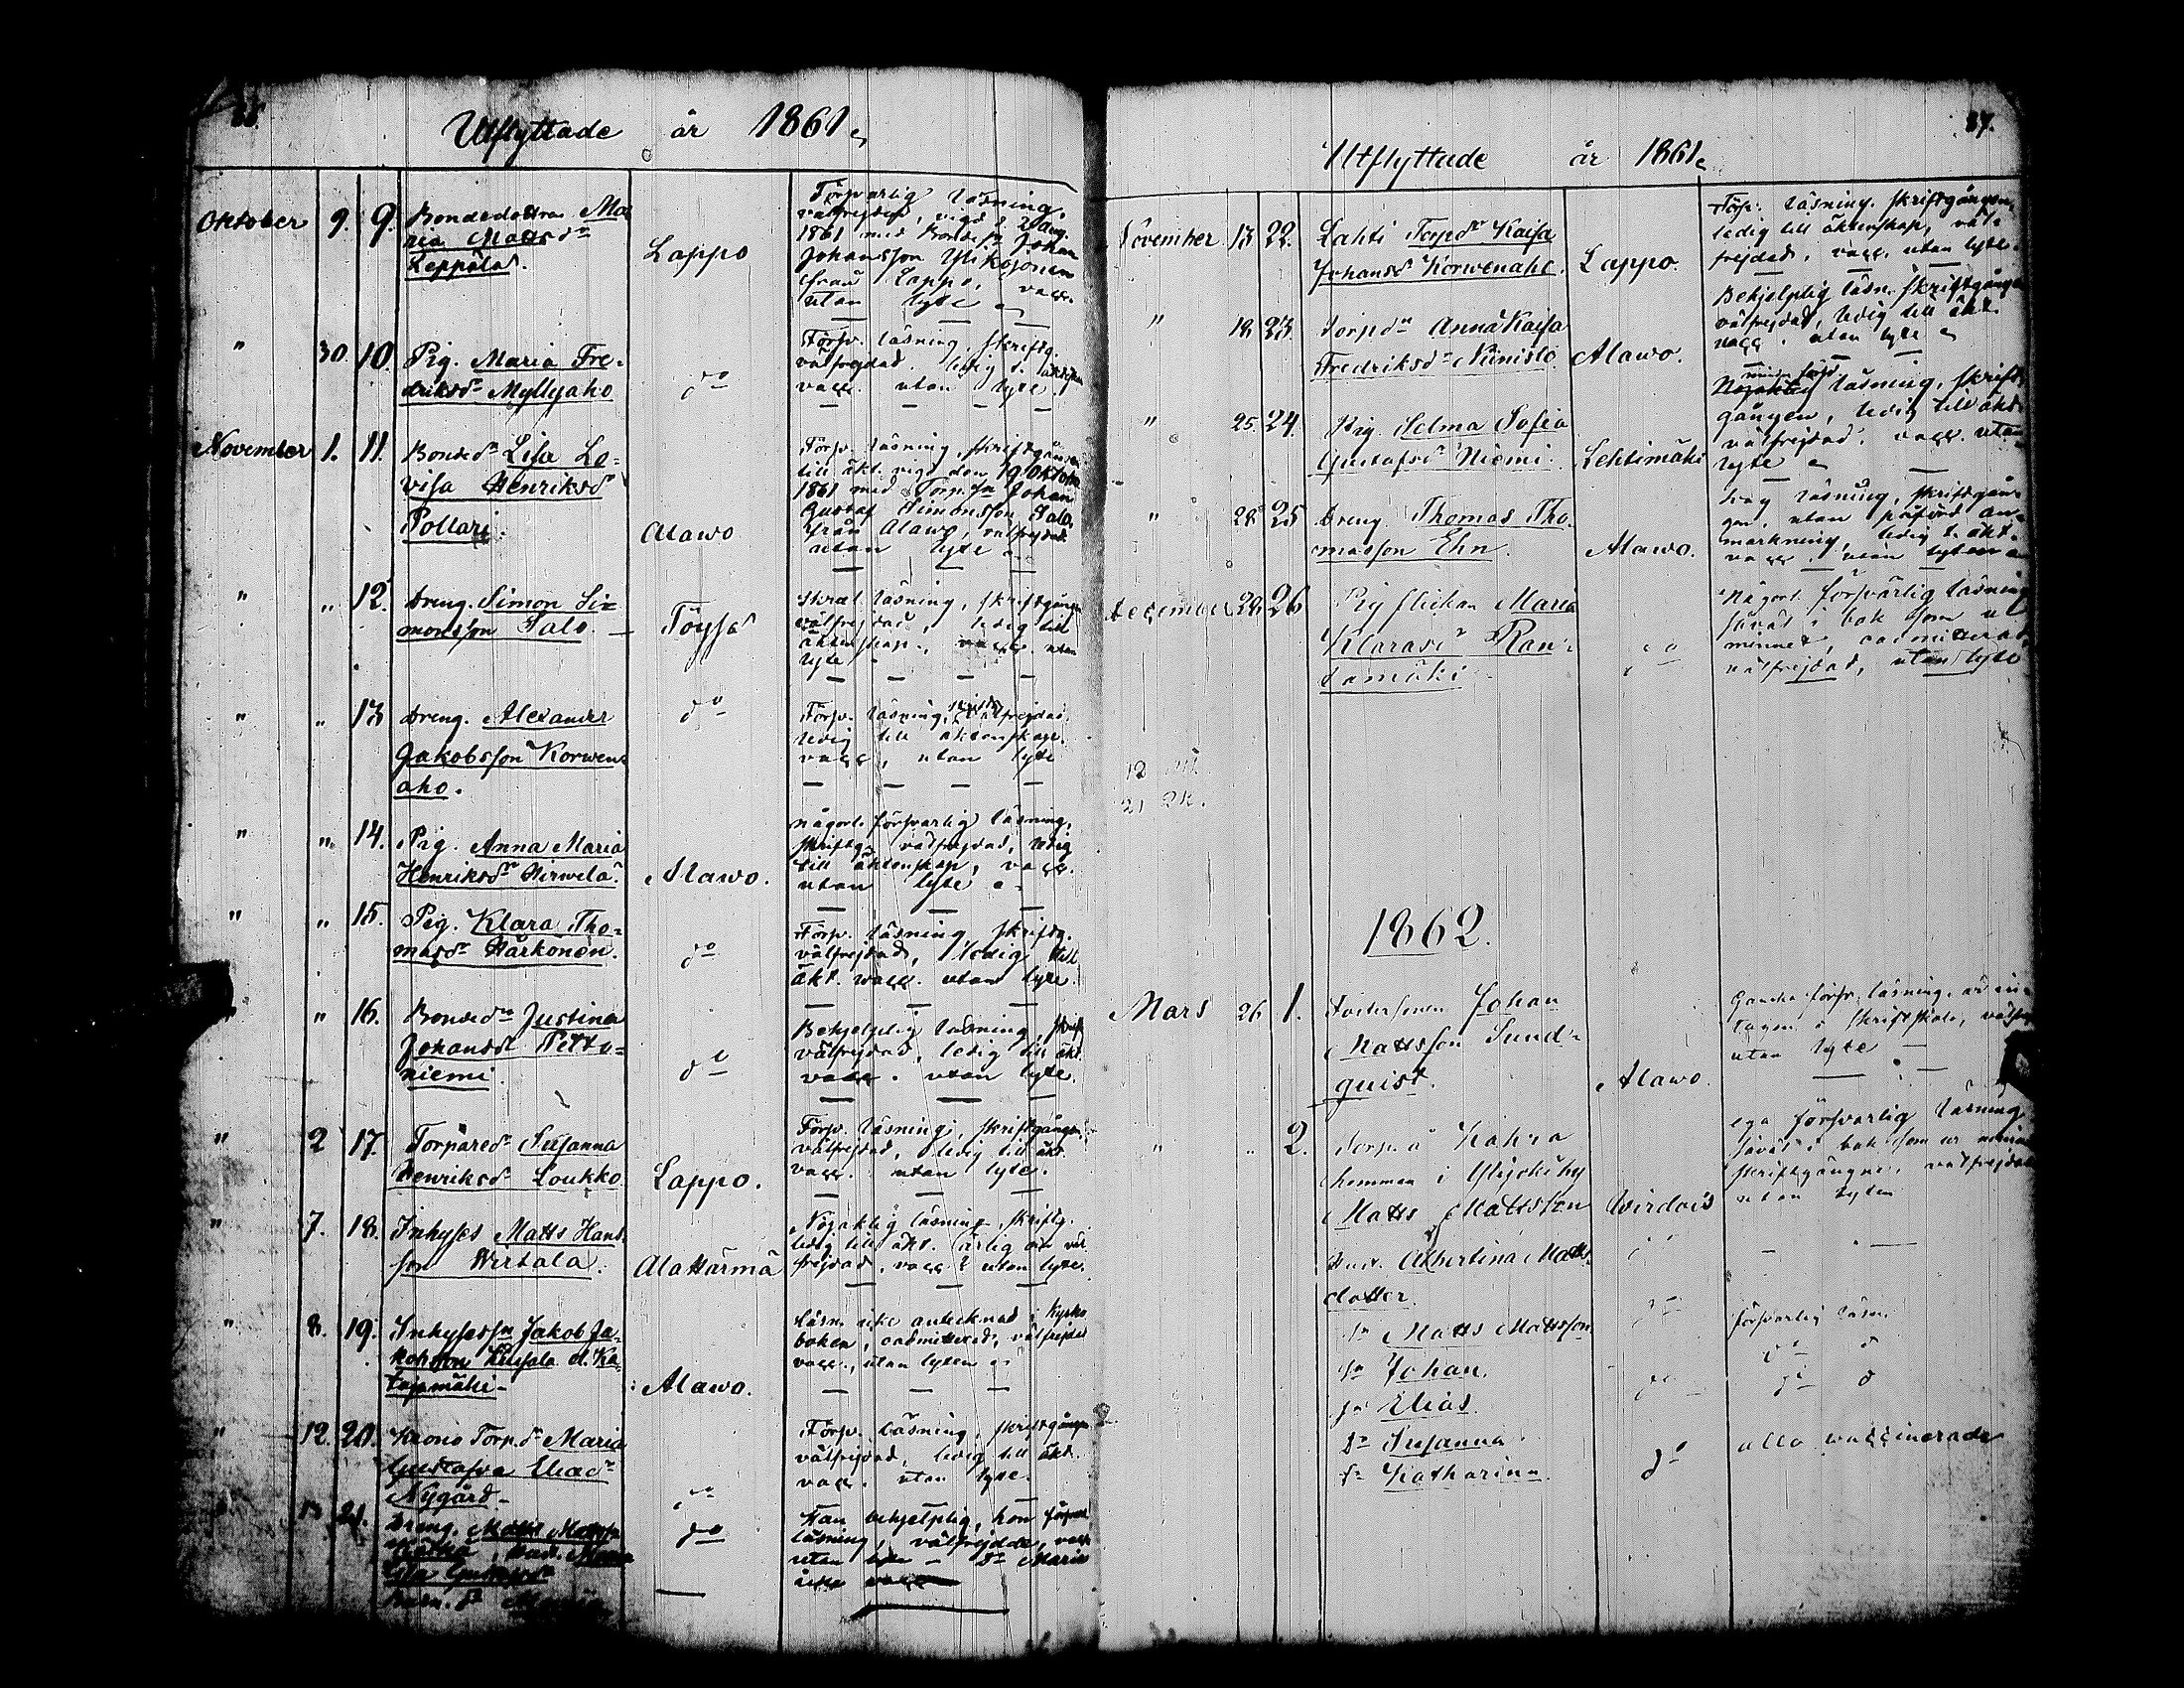 Utflyttade år 1861
Oktober 9. 9. Bondedottren Ma
ria Mattsdr
Leppälä.
Lappo
Försvarlig läsning,
välfrejdad, vigd d. 2 aug.
1861 med Bondes. Johan
Johansson Ylikojonen
från Lappo, vacc.
utan lyte
" 30. 10. Pig. Maria Fre-
driksdr Myllyaho
do
Försv. läsning, skriftg.
välfrejdad. ledig t.
vacc. utan lyte.
November 1. 11. Bondedr Lisa Lo-
visa Henriksdr
Pollari.
Alawo
Försv. läsning, skriftgången
till äkt. vigd den 19 Oktober
1861 med Torp.sn Johan
Gustaf Simonsson Salo.
från Alawo, välfrejdad
utan lyte
" " 12. Dreng. Simon Si-
monsson Salo.
Töysä
läsning, skriftgången
välfrejdad, ledig till
äktenskap., vacc. utan
lyte
" " 13 Dreng. Alexander
Jakobsson Korwen-
aho.
do
Försv. läsning, skriftg. välfrejdad.
ledig till äktenskap.
vacc, utan lyte
" " 14. Pig. Anna Maria
Henriksdr Hirwelä.
Alawo.
någorl. försvarlig läsning,
skriftg. välfrejdad, ledig
till äktenskap, vacc.
utan lyte
" " 15. Pig. Klara Tho-
masdr Härkönen.
do
Försv. läsning skriftg.
välfrejdad, ledig till
äkt. wacc. utan lyte.
" " 16. Bondedr Justina
Johansdr
niemi.
do
Behjelplig läsning, skriftg
välfrejdad, ledig till äkt.
vacc. utan lyte.
" 2 17. Torparedr Susanna
Henriksdr Loukko.
Lappo.
Försv. läsning, skriftgången
välfrejdad, ledig till äkt.
vacc. utan lyte.
" 7. 18. Inhyses Matts Hans
son Wirtala.
Alahärmä
Nöjaktig läsning, skriftg.
ledig till äkt. ärlig väl
frejdad, vacc. utan lyte.
" 8. 19. Inhysessn Jakob Ja-
kobsson
Alawo.
Läsn. icke antecknad i Kyrko
boken, oadmitterad, välfrejdad
vacc., utan lyten
" 12. 20. Krono Torp.dr Maria
Gustafva
Nygård
do
Försv. läsning, skriftgången
välfrejdad, ledig till äkt.
vacc. utan lyte.
13 21. Dreng. Matts
do
Han behjelplig, hon försvarl
läsning, välfrejdade, vacc
utan lyte dr Maria
icke vacc
87.
Utflyttade år 1861
November 13 22. Lahti Torpdr Kaisa
Johansdr Korwenaho.
Lappo.
Försv. läsning. skriftgången,
ledig till äktenskap, väl-
frejdad. vacc. utan lyte.
" 18 23. Torpdr Anna Kaisa
Fredriksdr Niinistö
Alawo.
Behjelplig läsn. skriftgången
välfrejdad, ledig till äkt.
vacc. utan lyte
" 25. 24. Pig. Selma Sofia
Gustafsdr Niemi.
Lehtimäki
läsning, skrift
gången, ledig till äkt.
välfrejdad. vacc. utan
lyte
" 28 25 Dreng Thomas Tho-
masson Ehn.
Alawo.
läsning, skriftgån-
gen, utan påförd an-
märkning, ledig t. äkt.
vacc. utan lyten
December 28. 26 Pigflickan Maria
Klarasdr Ran-
tamäki
do
Någorl. försvarlig läsning
såväl i bok som ur
minnet, oadmitterad,
välfrejdad, utan lyte
12
21
1862.
Mars 26 1. Fostersonen Johan
Mattsson Sund-
quist.
Alawo.
Ganska försv. läsning, är in-
tagen i skriftskola,
utan lyte
" " 2. Torp. å Kahra
hemman i Ylijokiby
Matts Mattsson
Wirdois
ega försvarlig läsning
såväl i bok som ur minnet
skriftgångne, välfrejdade
utan lyten
Hust. Albertina Matts-
dotter.
sn Matts Mattsson
försvarlig läsn.
sn Johan.
sn Elias.
dr Susanna
dr Katharina.
do
alla vaccinerade